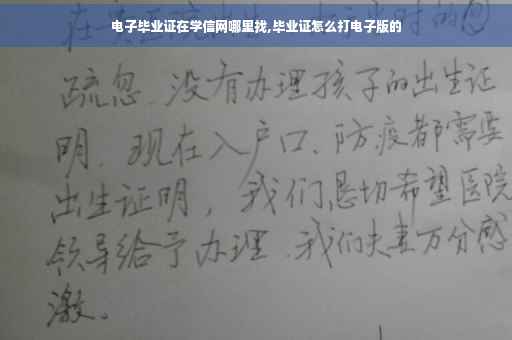 电子毕业证在学信网哪里找,毕业证怎么打电子版的
疏忽.没有办理孩子的出生证
明.现在入户口、防疫都需要
出生证明，我们恳切希望医院
领导给予办理.我们夫妻万分感
激。